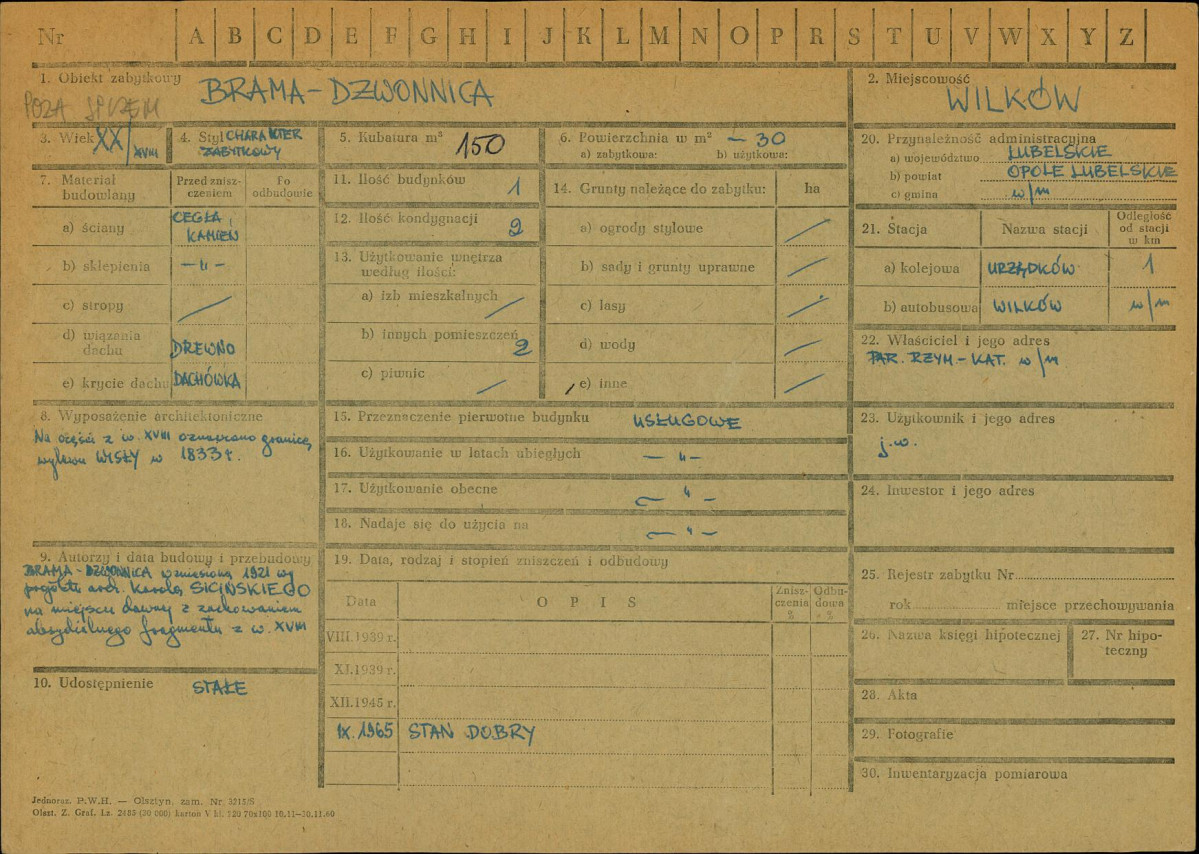 Nr A B C D E F G H I J K L M N O P R S T U V W X Y Z
1. Obiekt zabytkowy BRAMA-DZWONNICA
POZA SPISEM
2. Miejscowość
WILKÓW
3. Wiek XX/XVIII
4. Styl CHARAKTER
ZABYTKOWY
5. Kubatura m³ 150
6. Powierzchnia w m² ~30
a) zabytkowa: b) użytkowa:
7. Materiał
budowlany
Przed znisz-
czeniem
Po
odbudowie
a) ściany CEGŁA,
KAMIEŃ
b) sklepienia —„—
c) stropy /
d) wiązania
dachu DREWNO
e) krycie dachu DACHÓWKA
8. Wyposażenie architektoniczne
Na części z w. XVIII oznaczono granicę
wylewu WISŁY w 1833 r.
9. Autorzy i data budowy i przebudowy
BRAMA-DZWONNICA wzniesiona 1921 wg
projektu arch. Karola SICIŃSKIEGO
na miejscu dawnej z zachowaniem
absydialnego fragmentu z w. XVIII
10. Udostępnienie STAŁE
11. Ilość budynków 1
12. Ilość kondygnacji 2
13. Użytkowanie wnętrza
według ilości:
a) izb mieszkalnych /
b) innych pomieszczeń 2
c) piwnic /
14. Grunty należące do zabytku: ha
a) ogrody stylowe /
b) sady i grunty uprawne /
c) lasy /
d) wody /
e) inne /
15. Przeznaczenie pierwotne budynku USŁUGOWE
16. Użytkowanie w latach ubiegłych —„—
17. Użytkowanie obecne —„—
18. Nadaje się do użycia na —„—
19. Data, rodzaj i stopień zniszczeń i odbudowy
Data OPIS Znisz-
czenia
% Odbu-
dowa
%
VIII.1939 r.
XI.1939 r.
XII.1945 r.
IX.1965 STAN DOBRY
20. Przynależność administracyjna
a) województwo LUBELSKIE
b) powiat OPOLE LUBELSKIE
c) gmina w/m
21. Stacja Nazwa stacji Odległość
od stacji
w km
a) kolejowa URZĄDKÓW 1
b) autobusowa WILKÓW w/m
22. Właściciel i jego adres
PAR. RZYM-KAT. w/m
23. Użytkownik i jego adres
j.w.
24. Inwestor i jego adres
25. Rejestr zabytku Nr
rok miejsce przechowywania
26. Nazwa księgi hipotecznej
27. Nr hipo-
teczny
28. Akta
29. Fotografie
30. Inwentaryzacja pomiarowa
Jednoraz. P.W.H. — Olsztyn, zam. Nr 3215/S
Olszt. Z. Graf. Lz. 2485 (20 000) karton V kl. 220 70x100 10.11—30.11.60